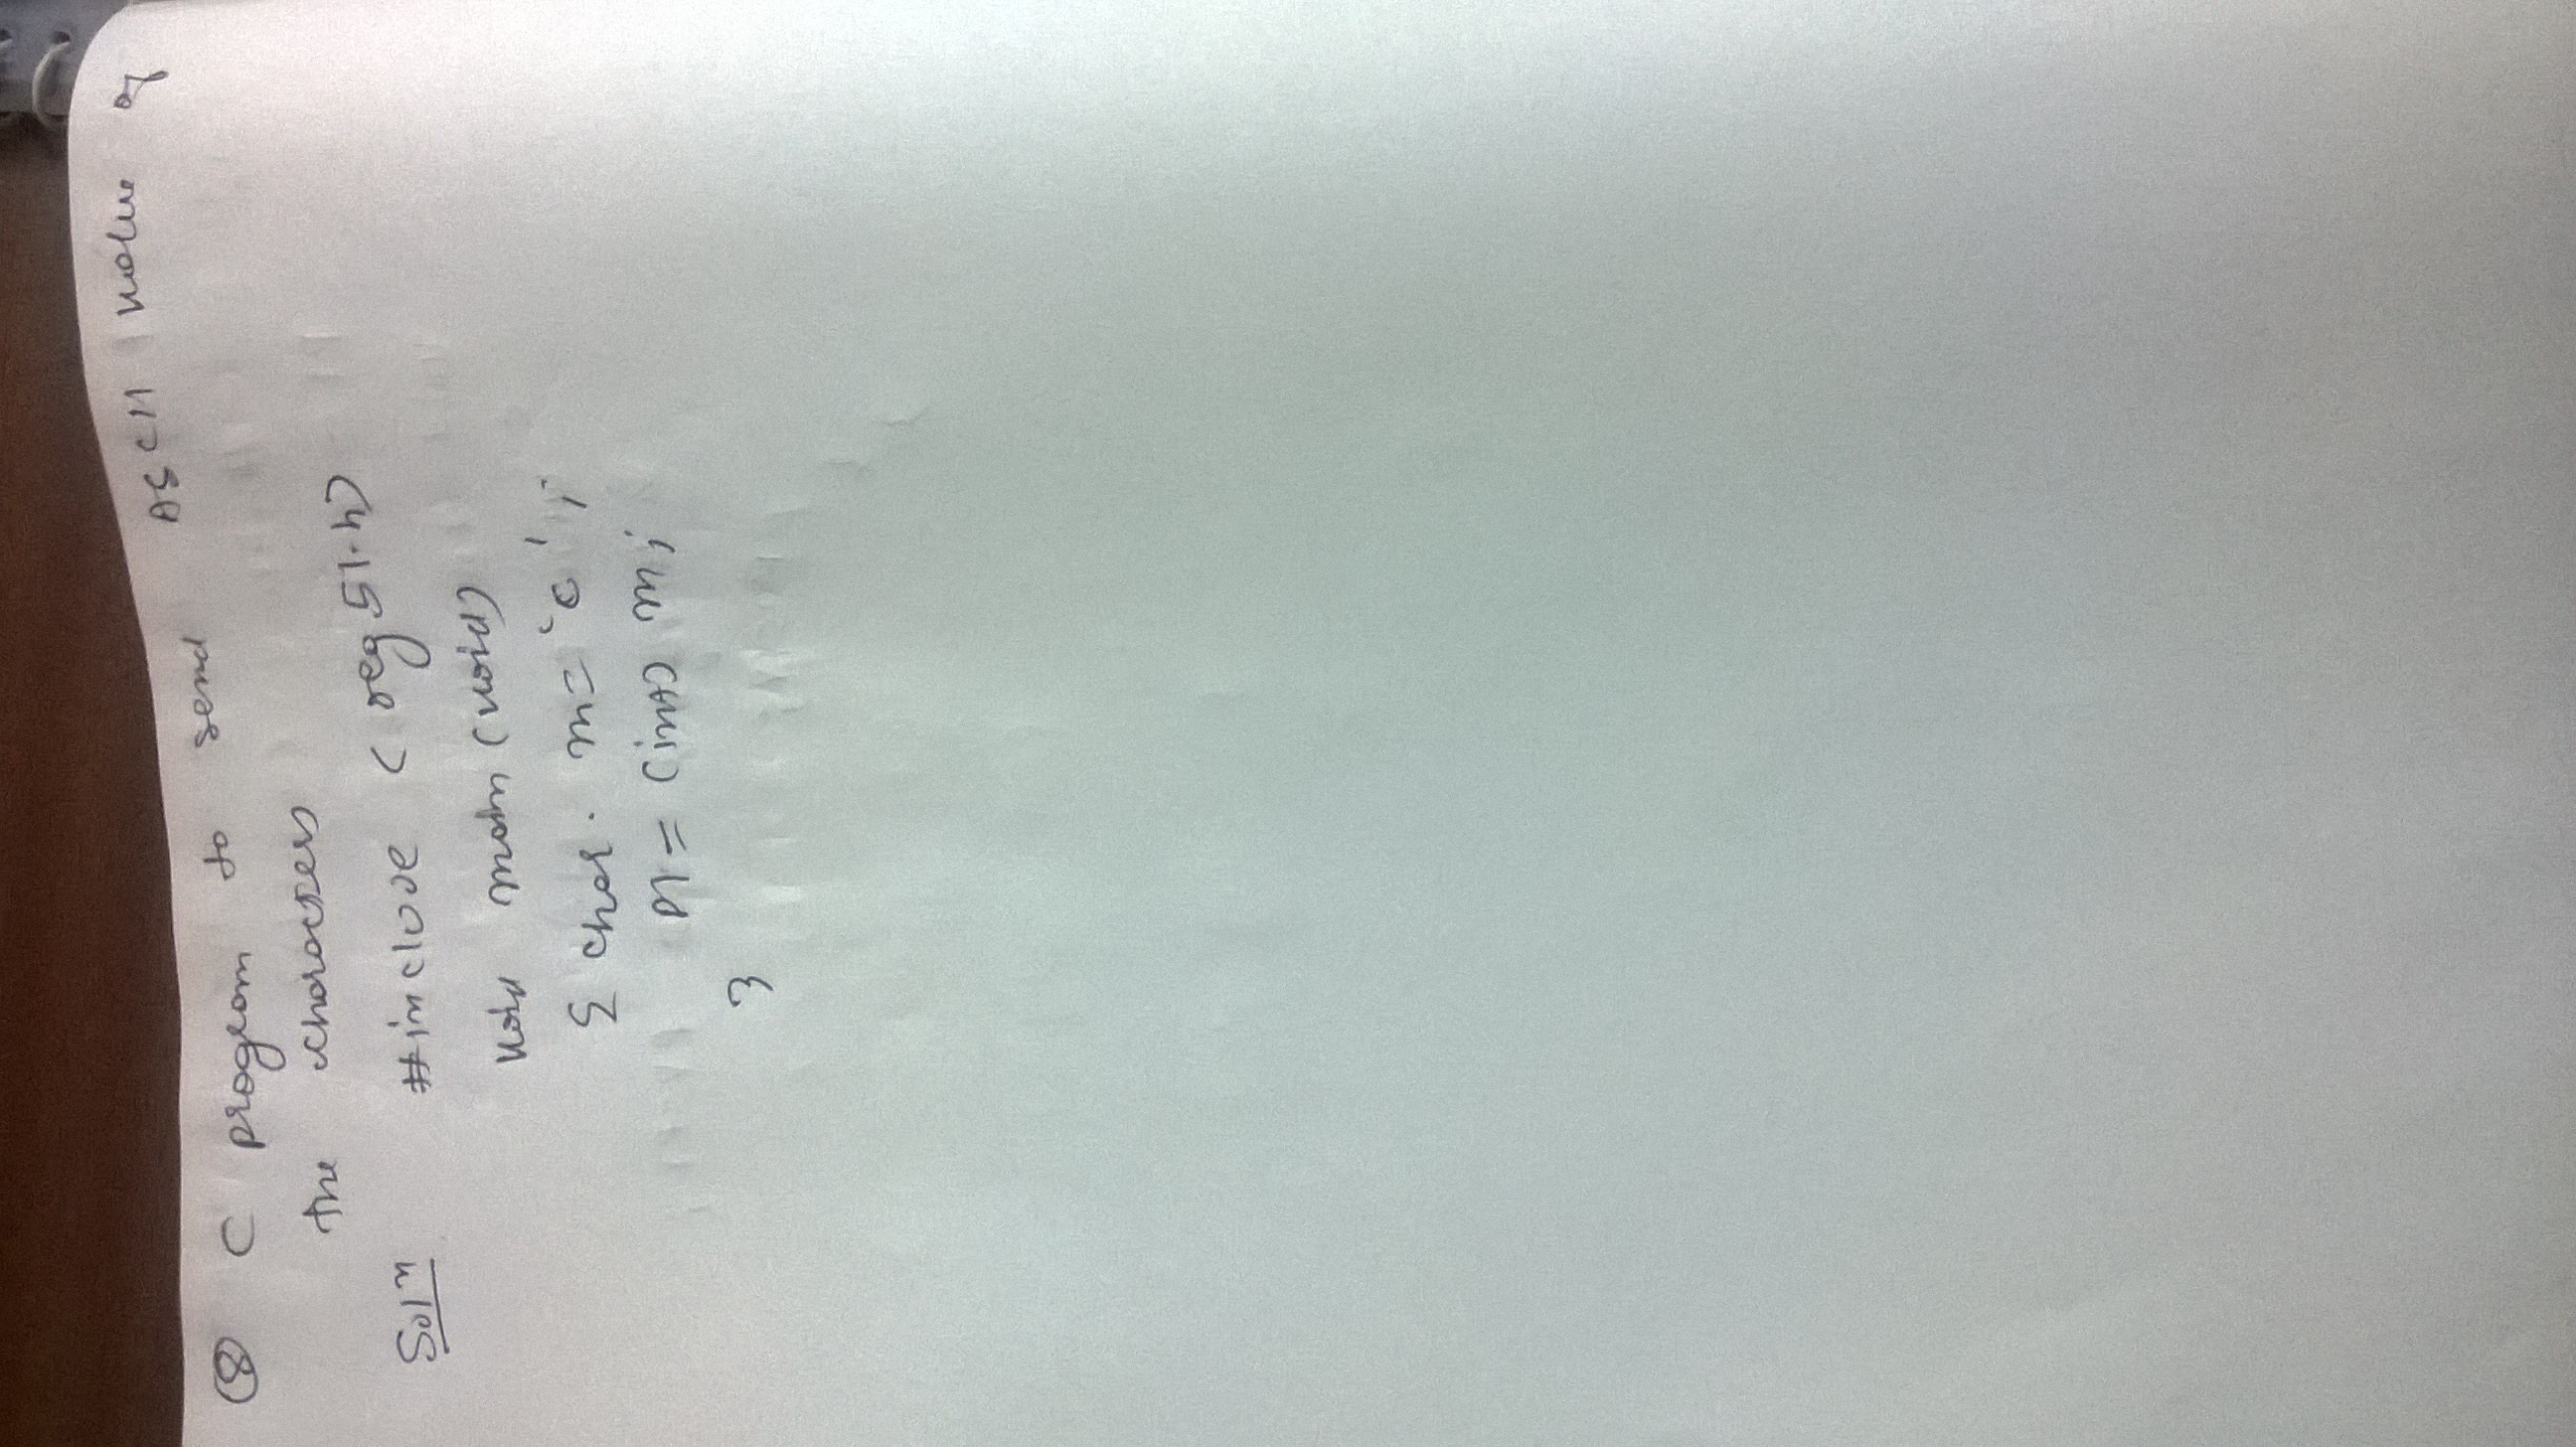 ⑧ C program to send ASCII value of
the characters
Solⁿ #include <reg51.h>
void main (void)
{ char. m = '0';
P1 = (int) m;
}